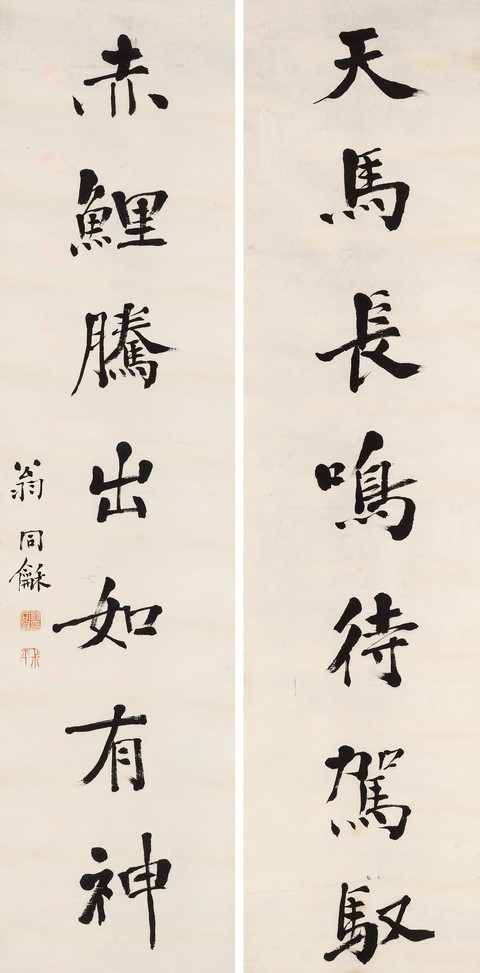 天馬長鳴待駕馭
赤鯉騰出如有神
翁同龢